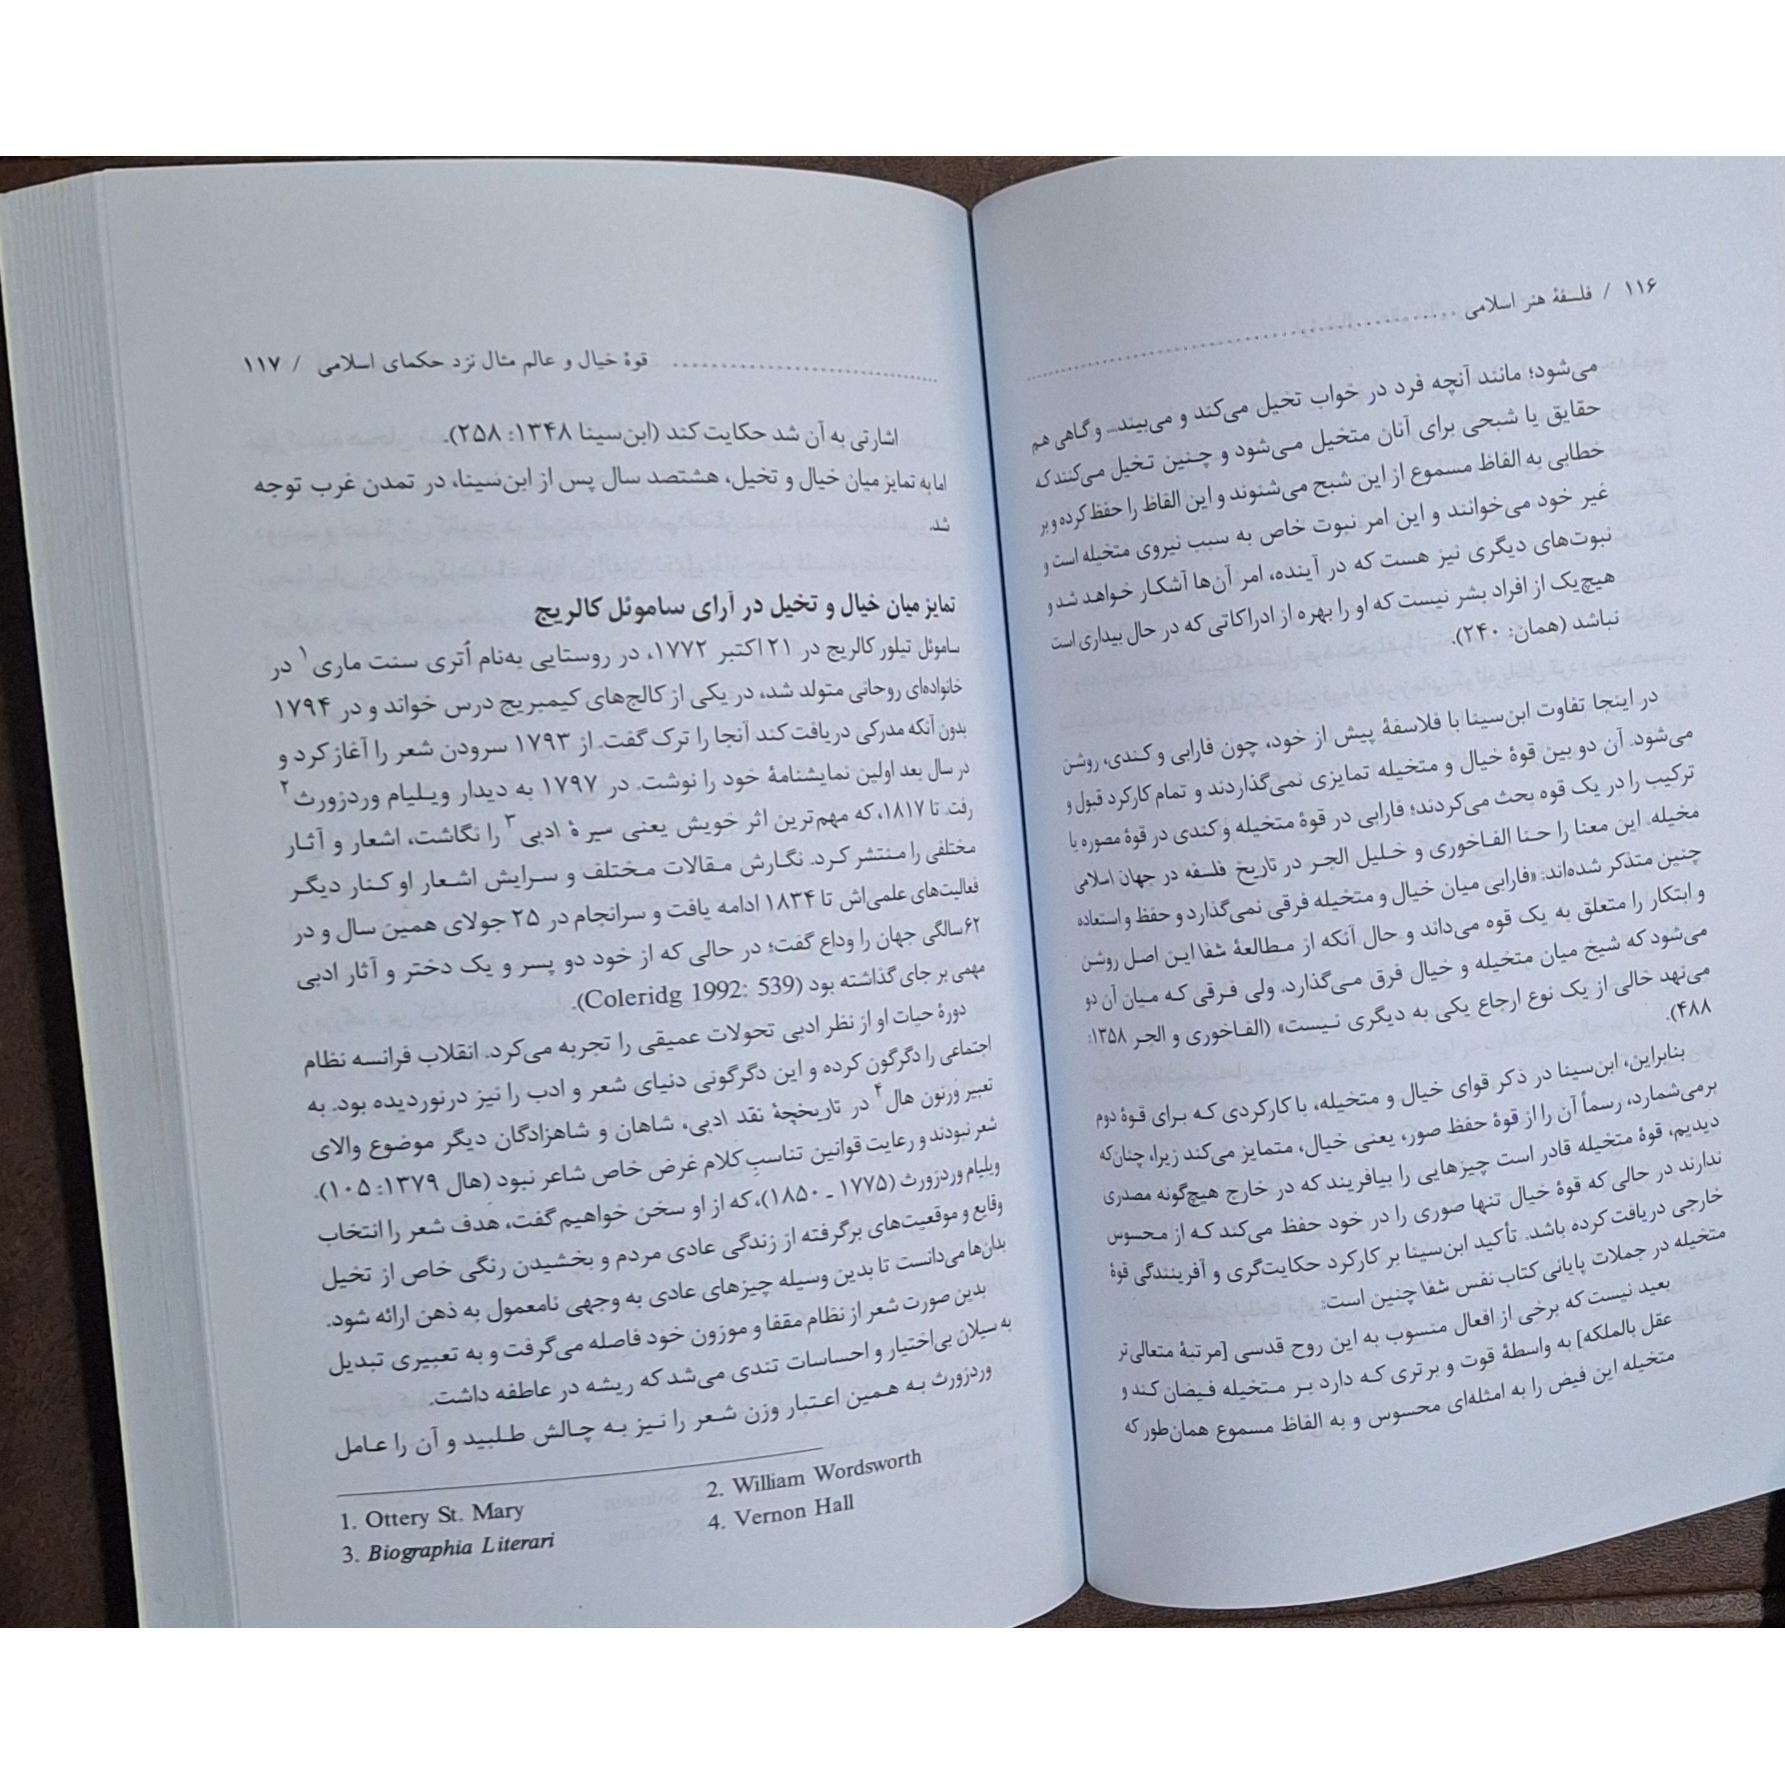 ۱۱۶ / فلسفهٔ هنر اسلامی
می‌شود؛ مانند آنچه فرد در خواب تخیل می‌کند و می‌بیند... و گاهی هم
حقایق یا شبحی برای آنان متخیل می‌شود و چنین تخیل می‌کنند که
خطابی به الفاظ مسموع از این شبح می‌شنوند و این الفاظ را حفظ کرده و بر
غیر خود می‌خوانند و این امر نبوت خاص به سبب نیروی متخیله است و
نبوت‌های دیگری نیز هست که در آینده، امر آن‌ها آشکار خواهد شد و
هیچ‌یک از افراد بشر نیست که او را بهره از ادراکاتی که در حال بیداری است
نباشد (همان: ۲۴۰).
در اینجا تفاوت ابن‌سینا با فلاسفهٔ پیش از خود، چون فارابی و کندی، روشن
می‌شود. آن دو بین قوهٔ خیال و متخیله تمایزی نمی‌گذاردند و تمام کارکرد قبول و
ترکیب را در یک قوه بحث می‌کردند؛ فارابی در قوهٔ متخیله و کندی در قوهٔ مصوره یا
مخیله. این معنا را حنا الفاخوری و خلیل الجر در تاریخ فلسفه در جهان اسلامی
چنین متذکر شده‌اند: «فارابی میان خیال و متخیله فرقی نمی‌گذارد و حفظ و استعاده
و ابتکار را متعلق به یک قوه می‌داند و حال آنکه از مطالعهٔ شفا این اصل روشن
می‌شود که شیخ میان متخیله و خیال فرق می‌گذارد. ولی فرقی که میان آن دو
می‌نهد خالی از یک نوع ارجاع یکی به دیگری نیست» (الفاخوری و الجر ۱۳۵۸:
۴۸۸).
بنابراین، ابن‌سینا در ذکر قوای خیال و متخیله، با کارکردی که برای قوهٔ دوم
برمی‌شمارد، رسماً آن را از قوهٔ حفظ صور، یعنی خیال، متمایز می‌کند زیرا، چنان‌که
دیدیم، قوهٔ متخیله قادر است چیزهایی را بیافریند که در خارج هیچ‌گونه مصدری
ندارند در حالی که قوهٔ خیال تنها صوری را در خود حفظ می‌کند که از محسوس
خارجی دریافت کرده باشد. تأکید ابن‌سینا بر کارکرد حکایت‌گری و آفرینندگی قوهٔ
متخیله در جملات پایانی کتاب نفس شفا چنین است:
بعید نیست که برخی از افعال منسوب به این روح قدسی [مرتبهٔ متعالی‌تر
عقل بالملکه] به واسطهٔ قوت و برتری که دارد بر متخیله فیضان کند و
متخیله این فیض را به امثله‌ای محسوس و به الفاظ مسموع همان‌طور که
قوهٔ خیال و عالم مثال نزد حکمای اسلامی / ۱۱۷
اشارتی به آن شد حکایت کند (ابن‌سینا ۱۳۴۸: ۲۵۸).
اما به تمایز میان خیال و تخیل، هشتصد سال پس از ابن‌سینا، در تمدن غرب توجه
شد.
تمایز میان خیال و تخیل در آرای ساموئل کالریج
ساموئل تیلور کالریج در ۲۱ اکتبر ۱۷۷۲، در روستایی به‌نام اُتری سنت ماری۱ در
خانواده‌ای روحانی متولد شد، در یکی از کالج‌های کیمبریج درس خواند و در ۱۷۹۴
بدون آنکه مدرکی دریافت کند آنجا را ترک گفت. از ۱۷۹۳ سرودن شعر را آغاز کرد و
در سال بعد اولین نمایشنامهٔ خود را نوشت. در ۱۷۹۷ به دیدار ویلیام وردزورث۲
رفت. تا ۱۸۱۷، که مهم‌ترین اثر خویش یعنی سیرهٔ ادبی۳ را نگاشت، اشعار و آثار
مختلفی را منتشر کرد. نگارش مقالات مختلف و سرایش اشعار او کنار دیگر
فعالیت‌های علمی‌اش تا ۱۸۳۴ ادامه یافت و سرانجام در ۲۵ جولای همین سال و در
۶۲سالگی جهان را وداع گفت؛ در حالی که از خود دو پسر و یک دختر و آثار ادبی
مهمی بر جای گذاشته بود (Coleridg 1992: 539).
دورهٔ حیات او از نظر ادبی تحولات عمیقی را تجربه می‌کرد. انقلاب فرانسه نظام
اجتماعی را دگرگون کرده و این دگرگونی دنیای شعر و ادب را نیز درنوردیده بود. به
تعبیر وَرنون هال۴ در تاریخچهٔ نقد ادبی، شاهان و شاهزادگان دیگر موضوع والای
شعر نبودند و رعایت قوانین تناسبِ کلام غرض خاص شاعر نبود (هال ۱۳۷۹: ۱۰۵).
ویلیام وردزورث (۱۷۷۵ ـ ۱۸۵۰)، که از او سخن خواهیم گفت، هدف شعر را انتخاب
وقایع و موقعیت‌های برگرفته از زندگی عادی مردم و بخشیدن رنگی خاص از تخیل
بدان‌ها می‌دانست تا بدین وسیله چیزهای عادی به وجهی نامعمول به ذهن ارائه شود.
بدین صورت شعر از نظام مقفا و موزون خود فاصله می‌گرفت و به تعبیری تبدیل
به سیلان بی‌اختیار و احساسات تندی می‌شد که ریشه در عاطفه داشت.
وردزورث به همین اعتبار وزن شعر را نیز به چالش طلبید و آن را عامل
1. Ottery St. Mary
2. William Wordsworth
3. Biographia Literari
4. Vernon Hall